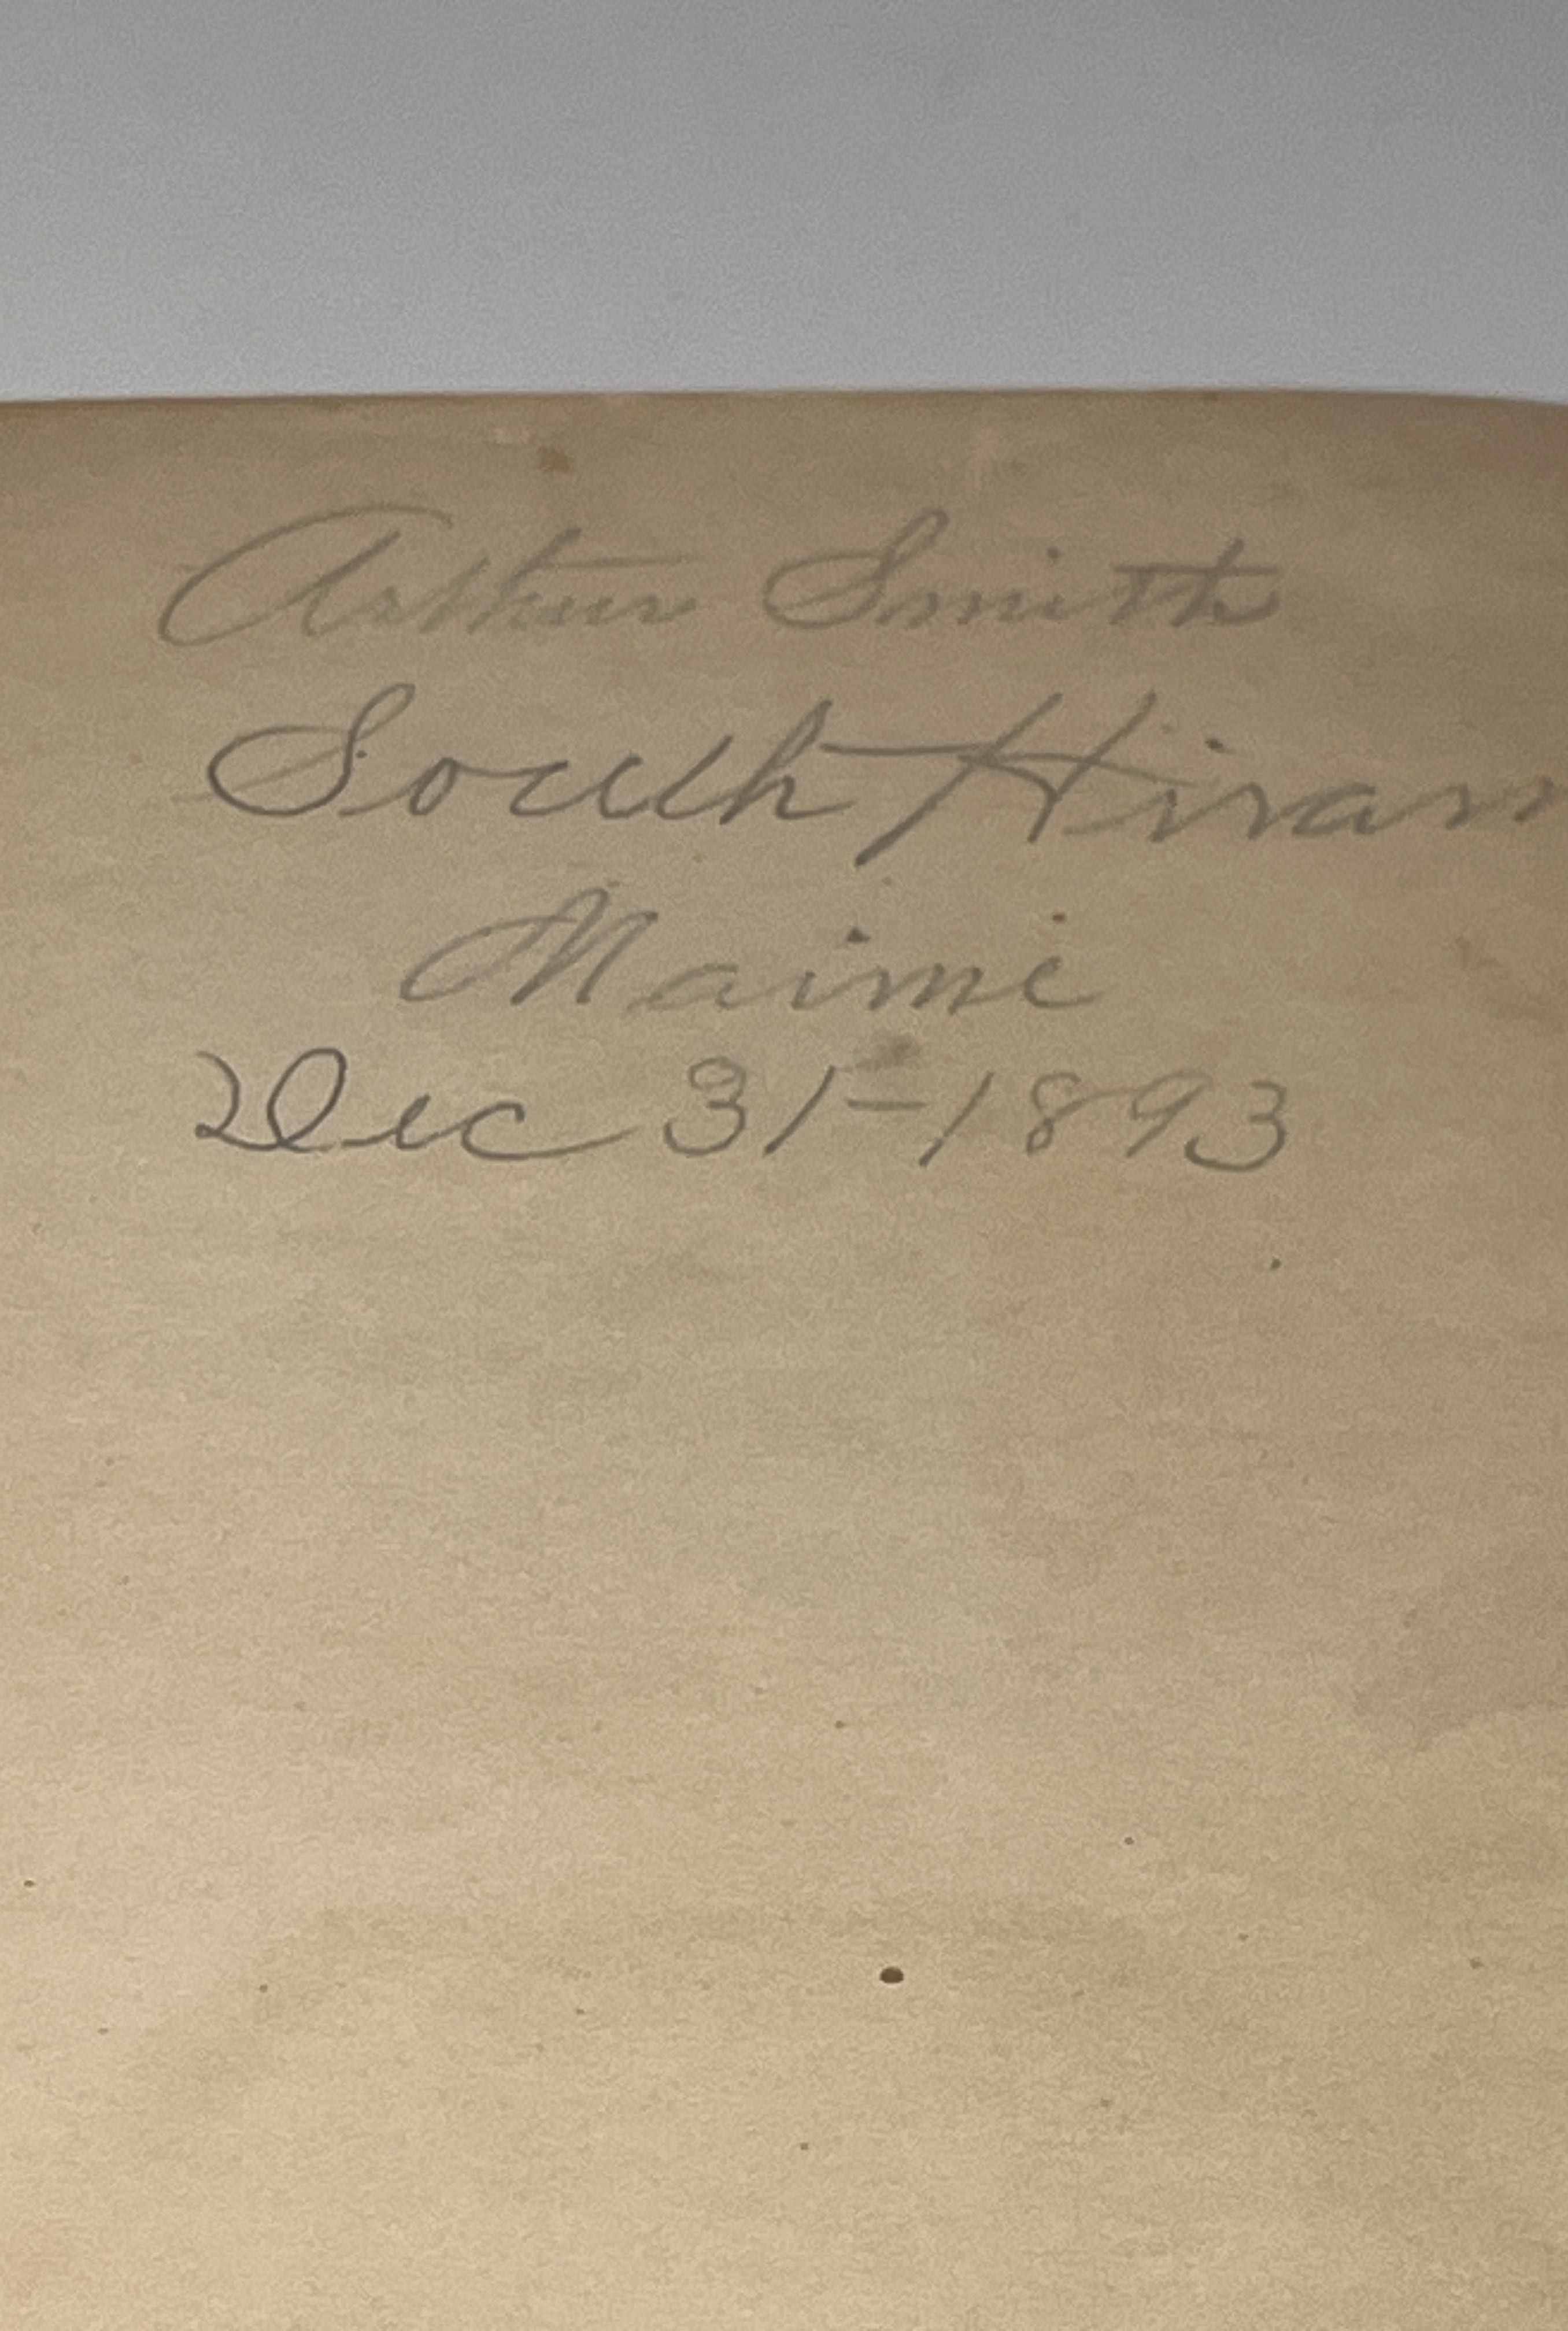 Arthur Smith
South Hiram
Maine
Dec 31-1893